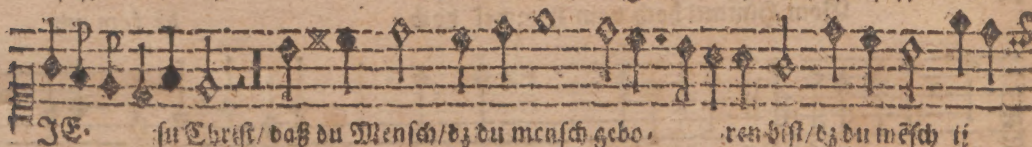 JE. ſu Chriſt/ daß du Menſch/dz du menſch gebo. ren biſt/dz du mẽſch ij